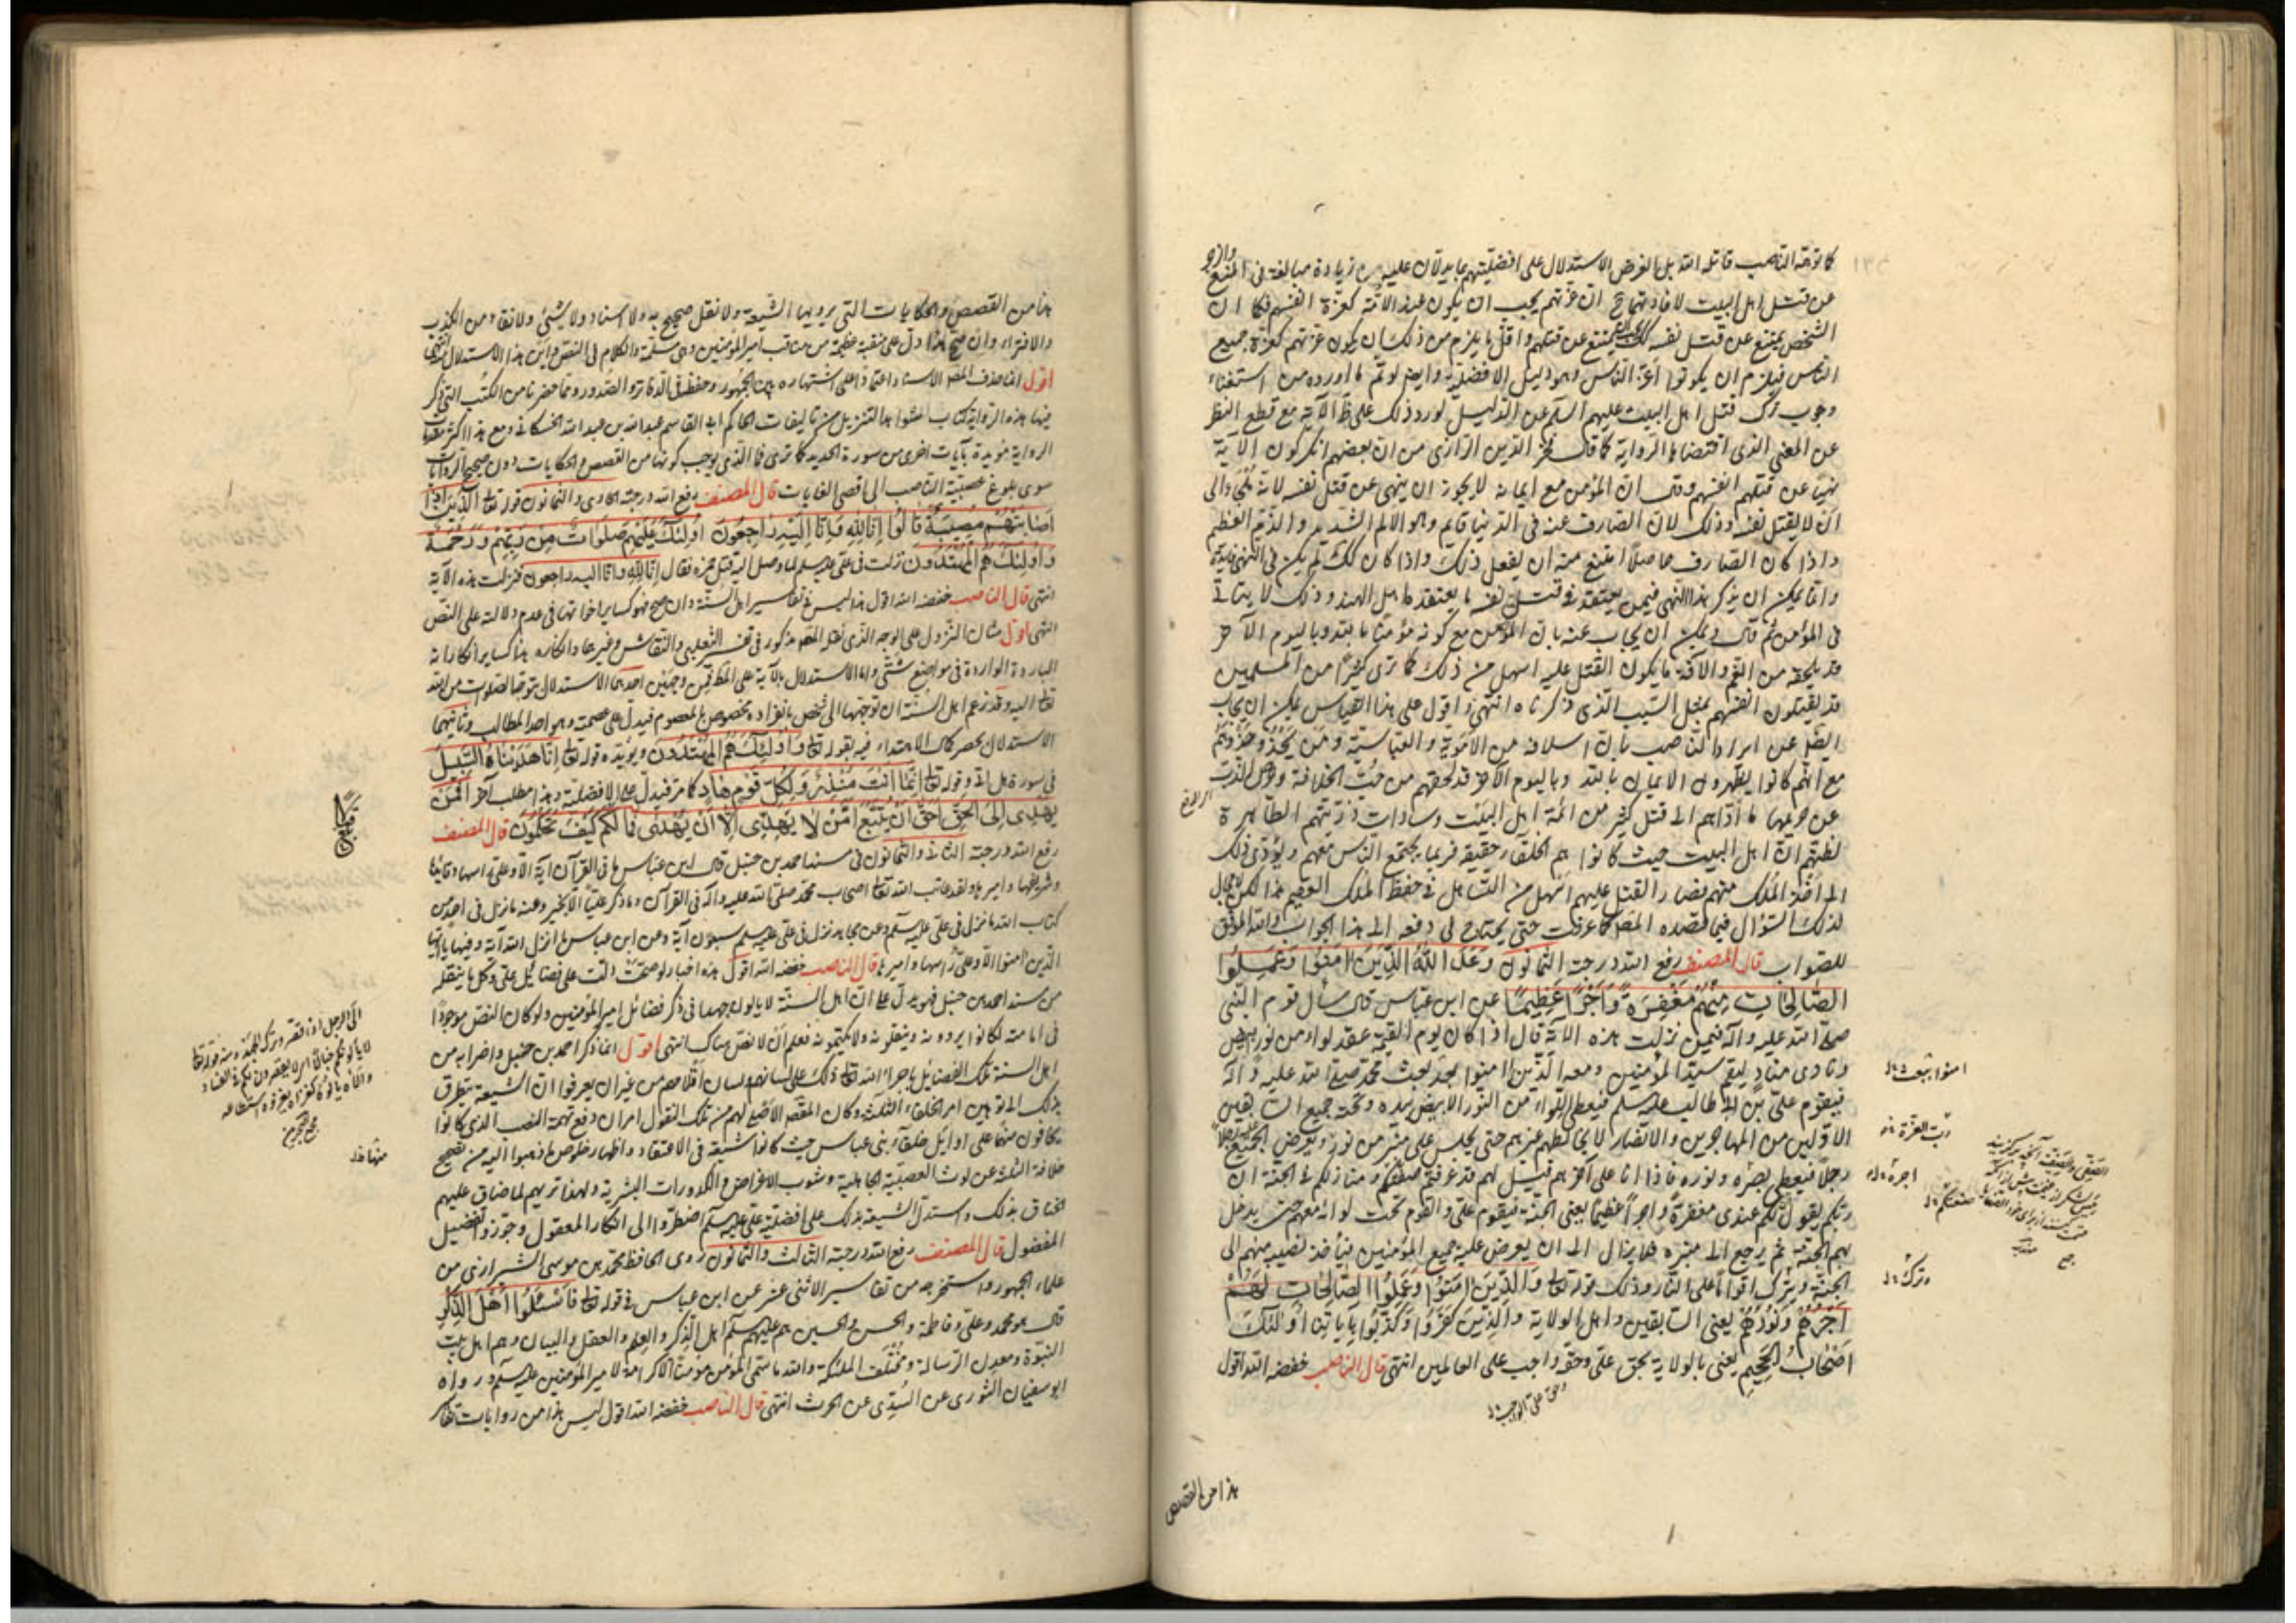 كما توهمه الناصب قاتله الله بل الغرض الاستدلال على افضليتهم بما يدلان عليه من زيادة مبالغة في المنع
عن قتل اهل البيت لافادتهما ان عزتهم يجب ان يكون عند الامة كعزة انفسهم فكما ان
الشخص يمتنع عن قتل نفسه كذلك يمتنع عن قتلهم واقل ما يلزم من ذلك ان يكون عزتهم كعزة جميع
الناس فيلزم ان يكونوا اعز الناس وهو دليل الافضلية وايضا لو تم ما اورده من استغناء
وجوب ترك قتل اهل البيت عليهم السلم عن الدليل لورد ذلك على ظ الآية مع قطع النظر
عن المعنى الذي اقتضاها الرواية كما قال فخر الدين الرازي من ان بعضهم انكر كون الآية
نهيا عن قتلهم انفسهم وقال ان المؤمن مع ايمانه لا يجوز ان ينهى عن قتل نفسه لانه ملجأ الى
ان لا يقتل نفسه وذلك لان الصارف عنه في الدنيا قايم وهو الالم الشديد والذم العظيم
واذا كان الصارف حاصلا امتنع منه ان يفعل ذلك واذا كان كذلك لم يكن في النهي فايدة
وانما يمكن ان يذكر هذا النهي فيمن يعتقد في قتل نفسه ما يعتقده اهل الهند وذلك لا يتاتى
في المؤمن ثم قال ويمكن ان يجاب عنه بان المؤمن مع كونه مؤمنا بالله وباليوم الآخر
قد يلحقه من الغم والآفة ما يكون القتل عليه اسهل من ذلك كما ترى كثيرا من المسلمين
قد يقتلون انفسهم بمثل السبب الذي ذكرناه انتهى واقول على هذا القياس يمكن ان يجاب
ايضا عن ايراد الناصب بان اسلافه من الاموية والعباسية ومن يحذو حذوهم
مع انهم كانوا يظهرون الايمان بالله وباليوم الآخر قد لحقهم من حب الخلافة
عن حريمها ما اداهم الى قتل كثير من ائمة اهل البيت وسادات ذريتهم الطاهرة
لظنهم ان اهل البيت حيث كانوا هم الخلفاء حقيقة فربما يجتمع الناس معهم ويؤدي ذلك
الى اخذ الملك منهم فصار القتل عليهم اسهل من التساهل في حفظ الملك العقيم هذا لكن لا مجال
لذلك السؤال فيما قصده المصنف كما عرفت حتى يحتاج في دفعه الى هذا الجواب والله الموفق
للصواب قال المصنف رفع الله درجته الثمانون وَعَدَ اللهُ الَّذِينَ اٰمَنُوا وَعَمِلُوا
الصَّالِحَاتِ مِنْهُمْ مَغْفِرَةً وَاَجْرًا عَظِيمًا عن ابن عباس قال سأل قوم النبي
صلى الله عليه وآله فيمن نزلت هذه الآية قال اذا كان يوم القيمة عقد لواء من نور ابيض
ونادى مناد ليقم سيد المؤمنين ومعه الذين امنوا بعد بعث محمد صلى الله عليه وآله
فيقوم علي بن ابي طالب عليه سلم فيعطى اللواء من النور الابيض بيده وتحته جميع السابقين
الاولين من المهاجرين والانصار لا يخالطهم غيرهم حتى يجلس على منبر من نور ويعرض الجميع عليه رجلا
رجلا فيعطى بصره ونوره فاذا اتى على آخرهم قيل لهم قد عرفتم صفتكم ومنازلكم في الجنة ان
ربكم يقول لكم عندي مغفرة واجرا عظيما يعني الجنة فيقوم علي والقوم تحت لوائه معهم حتى يدخل
بهم الجنة ثم يرجع الى منبره فلا يزال الى ان يعرض عليه جميع المؤمنين فيأخذ نصيبه منهم الى
الجنة ويترك اقواما على النار وذلك قوله تعالى وَالَّذِينَ اٰمَنُوا وَعَمِلُوا الصَّالِحَاتِ لَهُمْ
اَجْرُهُمْ وَنُورُهُمْ يعني السابقين واهل الولاية وَالَّذِينَ كَفَرُوا وَكَذَّبُوا بِآيَاتِنَا اُولٰئِكَ
اَصْحَابُ الْجَحِيمِ يعني بالولاية بحق علي وحقه واجب على العالمين انتهى قال الناصب خفضه الله اقول
هذا من القصص
هذا من القصص والحكايات التي يرويها الشيعة ولا نقل صحيح به ولا اسناد ولا شيئ ولا نقاد من الكذب
والافتراء وان صح هذا دل على منقبة عظيمة من مناقب امير المؤمنين وهي مسلمة والكلام في النص واين هذا الاستدلال انتهى
اقول انما حذف المصنف الاسناد اعتمادا على اشتهاره بين الجمهور وحفظه في الدفاتر والصدور ومما حضرنا من الكتب التي ذكر
فيها هذه الرواية كتاب شواهد التنزيل من تاليفات الحاكم ابي القاسم عبد الله بن عبد الله الحسكاني ومع هذا اكثر مقدمات
الرواية مؤيدة بآيات اخرى من سورة الحديد كما ترى فما الذي يوجب كونها من القصص والحكايات دون صحيح الروايات
سوى بلوغ عصبية الناصب الى اقصى الغايات قال المصنف رفع الله درجته الحادي والثمانون قوله تعالى الَّذِينَ اِذَا
اَصَابَتْهُمْ مُصِيبَةٌ قَالُوا اِنَّا لِلّٰهِ وَاِنَّا اِلَيْهِ رَاجِعُونَ اُولٰئِكَ عَلَيْهِمْ صَلَوَاتٌ مِنْ رَبِّهِمْ وَرَحْمَةٌ
وَاُولٰئِكَ هُمُ الْمُهْتَدُونَ نزلت في علي عليه سلم لما وصل اليه قتل حمزة فقال انا لله وانا اليه راجعون فنزلت هذه الآية
انتهى قال الناصب خفضه الله اقول هذا ليس في تفاسير اهل السنة وان صح فهو كساير اخواتها في عدم دلالته على النص
انتهى اقول شان النزول على الوجه الذي نقله المصنف مذكور في تفسير الثعلبي والنقاش وغيرهما وانكاره هنا كساير انكاراته
الباردة الواردة في مواضع شتى واما الاستدلال بالآية على المط فمن وجهين احدهما الاستدلال بتوجه الصلوات من الله
تعالى اليه وقد زعم اهل السنة ان توجهها الى شخص بانفراده مخصوص بالمعصوم فيدل على عصمته وهو احد المطالب وثانيهما
الاستدلال بحصر كمال الاهتداء فيه بقوله تعالى وَاُولٰئِكَ هُمُ الْمُهْتَدُونَ ويؤيده قوله تعالى اِنَّا هَدَيْنَاهُ السَّبِيلَ
في سورة هل اتى وقوله تعالى اِنَّمَا اَنْتَ مُنْذِرٌ وَلِكُلِّ قَوْمٍ هَادٍ كما مر فيدل على الافضلية وهذا مطلب آخر اَفَمَنْ
يَهْدِي اِلَى الْحَقِّ اَحَقُّ اَنْ يُتَّبَعَ اَمَّنْ لَا يَهِدِّي اِلَّا اَنْ يُهْدٰى فَمَا لَكُمْ كَيْفَ تَحْكُمُونَ قال المصنف
رفع الله درجته الثاني والثمانون في مسند احمد بن حنبل قال ابن عباس ما في القرآن آية الا وعلي راسها وقائدها
وشريفها واميرها ولقد عاتب الله تعالى اصحاب محمد صلى الله عليه وآله في القرآن وما ذكر عليا الا بخير وعنه ما نزل في احد من
كتاب الله ما نزل في علي عليه سلم وعن مجاهد نزل في علي عليه سلم سبعون آية وعن ابن عباس ما انزل الله آية وفيها يا ايها
الذين امنوا الا وعلي راسها واميرها قال الناصب خفضه الله اقول هذه اخبار لو صحت دلت على فضائل علي وكل ما ينقله
من مسند احمد بن حنبل فهو يدل على ان اهل السنة لا يألون جهدا في ذكر فضائل امير المؤمنين ولو كان النص موجودا
في امامته لكانوا يردونه وينقلونه ولا يكتمونه فعلم ان لا نص هناك انتهى اقول انما ذكر احمد بن حنبل واضرابه من
اهل السنة تلك الفضائل باجراء الله تعالى ذلك على لسانهم ولسان اقلامهم من غير ان يعرفوا ان الشيعة يتطرق
بذلك الى توهين امر الخلفاء الثلث وكان المقصد الاصلي لهم من تلك النقول امران دفع تهمة النصب الذي كانوا
يخافون منها على اوايل خلفاء بني عباس حيث كانوا شيعة في الاعتقاد واظهار خلوص ما ذهبوا اليه من تصحيح
خلافة الثلثة عن لوث العصبية الجاهلية وشوب الاغراض والكدورات البشرية ولهذا تريهم لما ضاق عليهم
الخناق بذلك واستدل الشيعة بذلك على افضلية علي عليه سلم اضطروا الى انكار المعقول وجوزوا تفضيل
المفضول قال المصنف رفع الله درجته الثالث والثمانون روى الحافظ محمد بن موسى الشيرازي من
علماء الجمهور واستخرجه من تفاسير الاثنى عشر عن ابن عباس في قوله تعالى فَاسْئَلُوا اَهْلَ الذِّكْرِ
قال هو محمد وعلي وفاطمة والحسن والحسين هم عليهم سلم اهل الذكر والعلم والعقل والبيان وهم اهل بيت
النبوة ومعدن الرسالة ومختلف الملئكة والله ما سمي المؤمن مؤمنا الا كرامة لامير المؤمنين عليه سلم ورواه
ابو سفيان الثوري عن السدي عن الحرث انتهى قال الناصب خفضه الله اقول ليس هذا من روايات